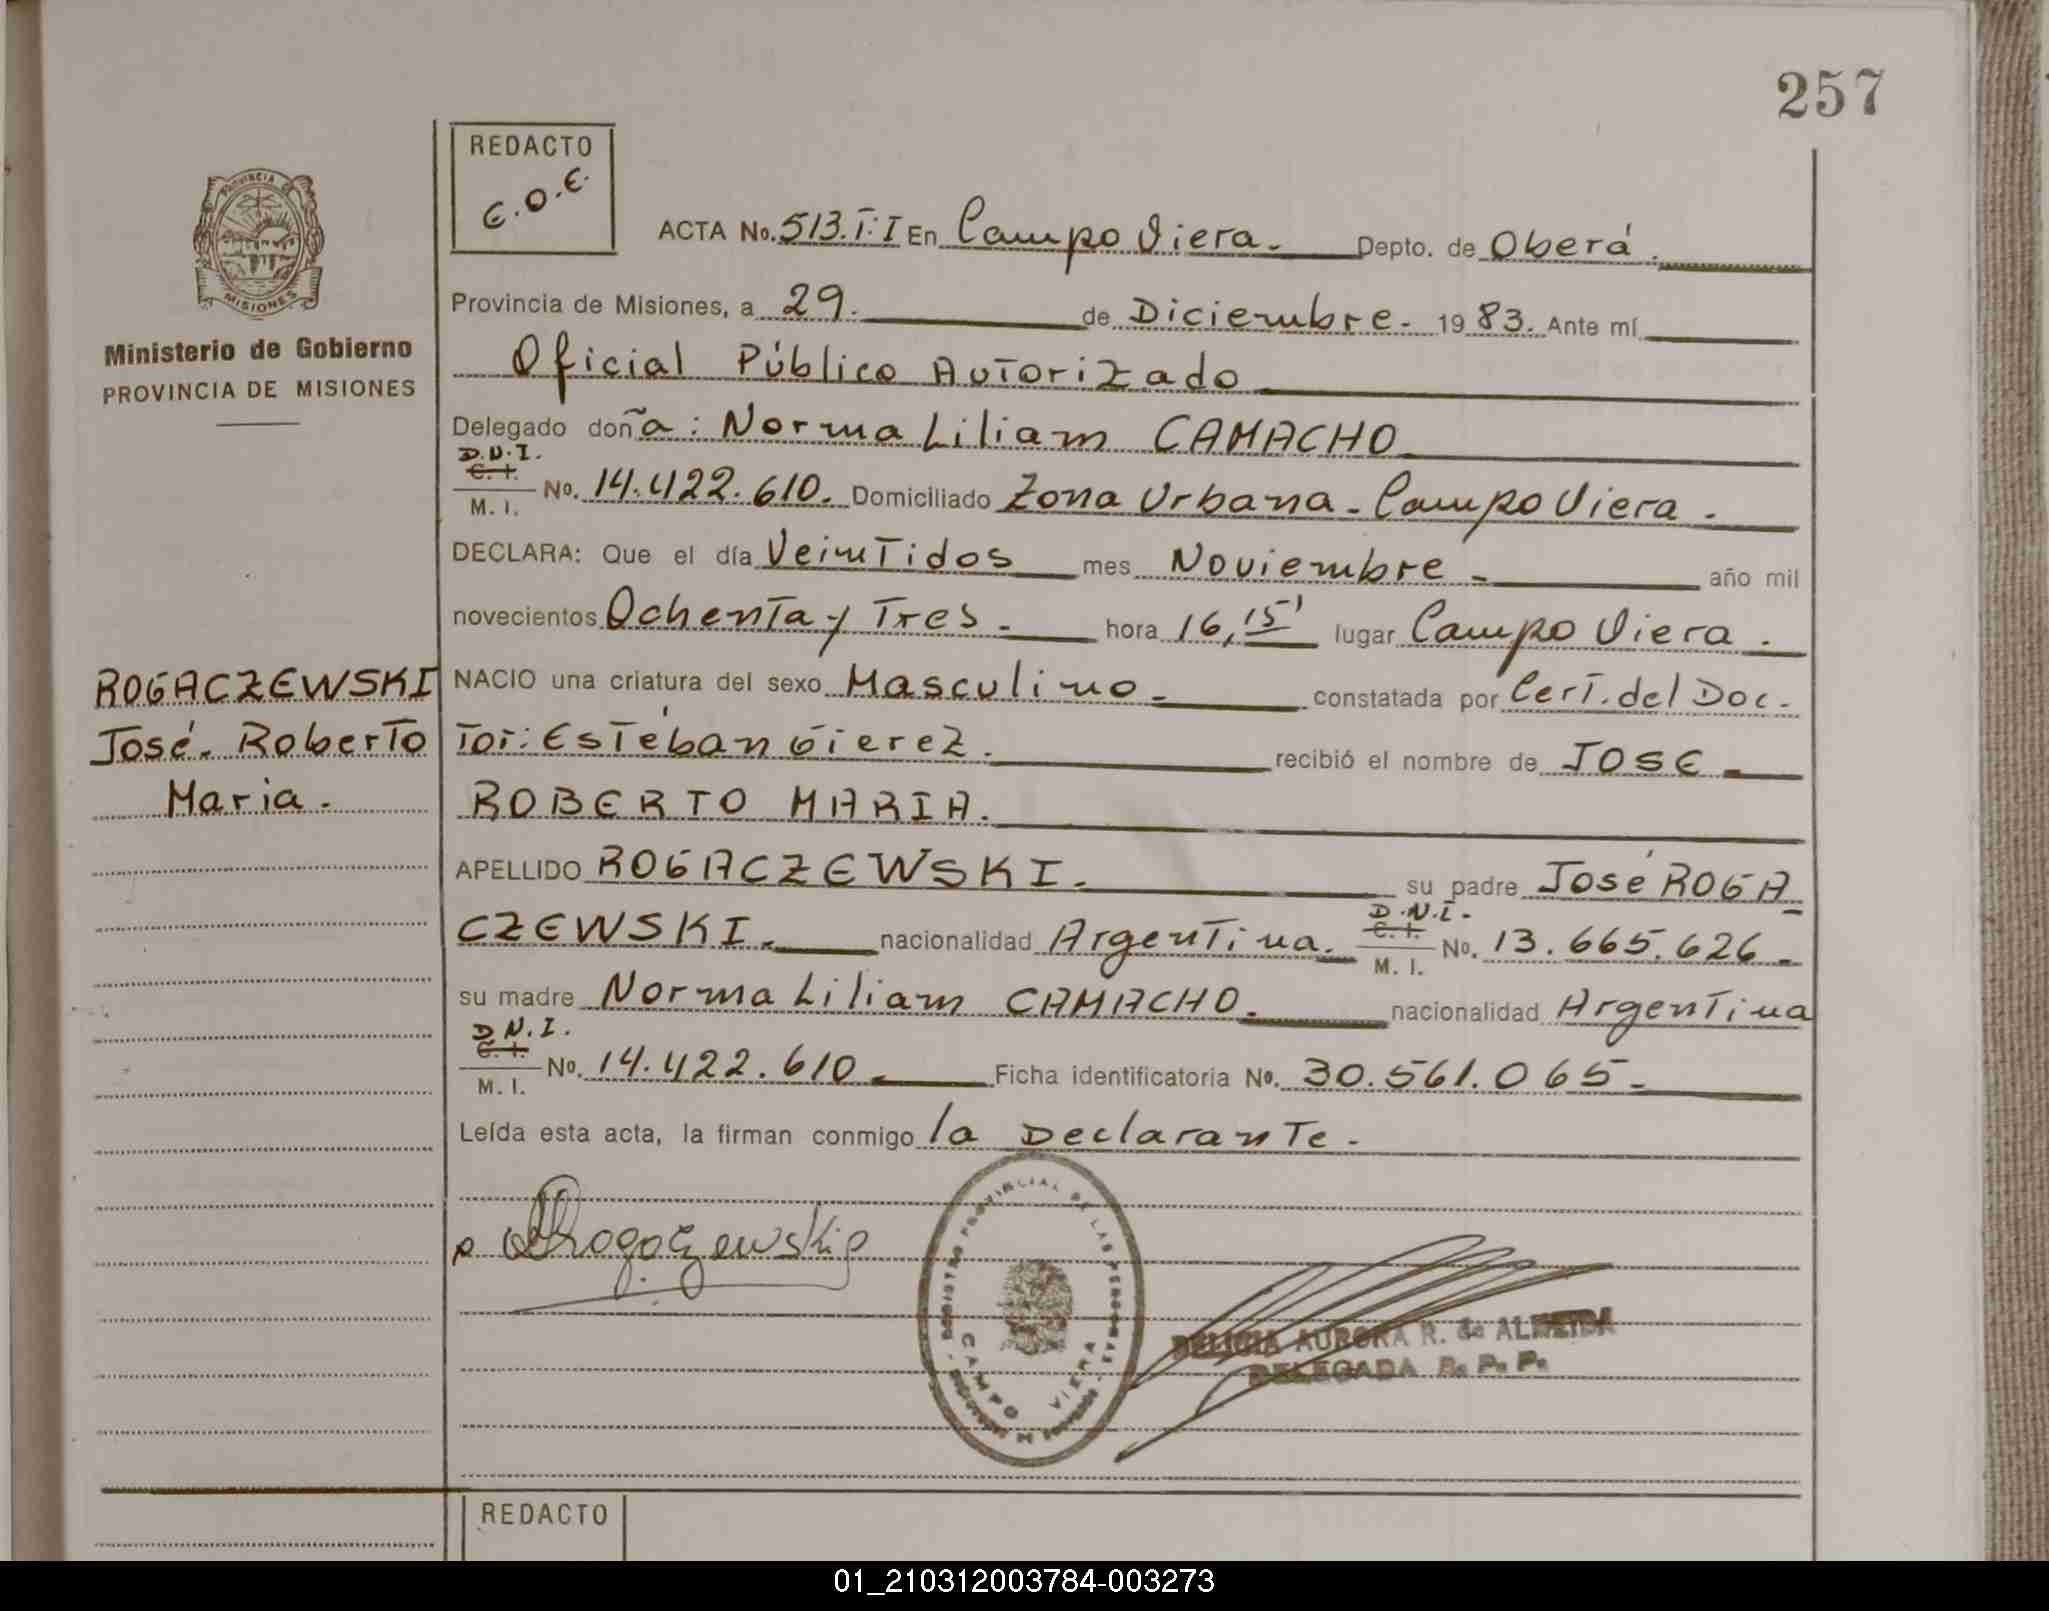 257
REDACTO
E.O.E.
PROVINCIA DE
MISIONES
Ministerio de Gobierno
PROVINCIA DE MISIONES
ACTA No. 513.T:I En Campo Viera.- Depto. de Oberá.
Provincia de Misiones, a 29. de Diciembre.- 19 83. Ante mí
Oficial Público Autorizado
Delegado doña: Norma Liliam CAMACHO
D.N.I.
C. I.
M. I. No. 14.422.610. Domiciliado Zona Urbana - Campo Viera.-
DECLARA: Que el día Veintidos mes Noviembre - año mil
novecientos Ochenta y Tres.- hora 16,15' lugar Campo Viera.
ROGACZEWSKI
José. Roberto
Maria.-
NACIO una criatura del sexo Masculino.- constatada por Cert. del Doc-
tor: Estéban Gierez. recibió el nombre de JOSE -
ROBERTO MARIA.
APELLIDO ROGACZEWSKI.- su padre José ROGA-
CZEWSKI.- nacionalidad Argentina. D.N.I.-
C. I.
M. I. No. 13.665.626-
su madre Norma Liliam CAMACHO.- nacionalidad Argentina
D.N.I.
C. I.
M. I. No. 14.422.610.- Ficha identificatoria No. 30.561.065-
Leída esta acta, la firman conmigo la Declarante.-
PROVINCIAL DE LAS PERSONAS
CAMPO VIERA
DELICIA AURORA R. de ALMEIDA
DELEGADA R. P. P.
REDACTO
01_210312003784-003273